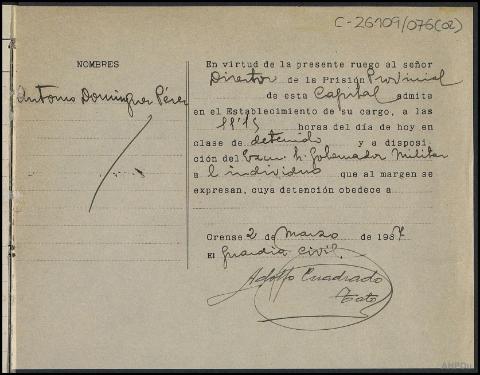 C-26109/076(02)
NOMBRES
Antonio Dominguez Pérez
En virtud de la presente ruego al señor
Director de la Prisión Provincial
de esta Capital admita
en el Establecimiento de su cargo, a las
11'15 horas del día de hoy en
clase de detenido y a disposi
ción del Excmo. Sr. Gobernador Militar
a l individuo que al margen se
expresan, cuya detención obedece a
Orense 2 de Marzo de 1937
El Guardia Civil.
Adolfo Cuadrado